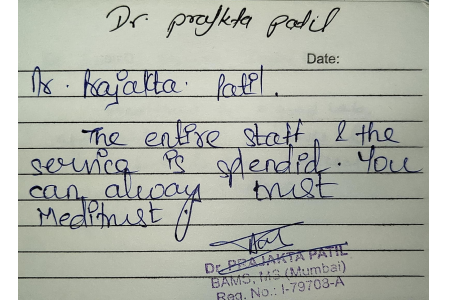 Dr. prajkta patil
Date:
Dr. Prajakta. Patil.
The entire staff & the
service is splendid. You
can alway trust
Meditrust.
Dr. PRAJAKTA PATIL
BAMS, MS (Mumbai)
Reg. No.: I-79703-A